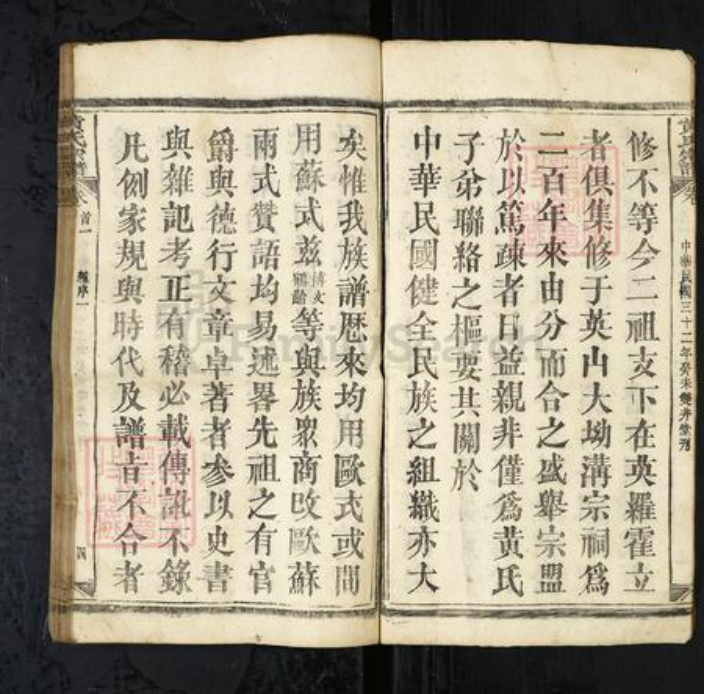 黃氏宗譜
卷
中華民國三十二年癸未雙井堂刊
修不等今二祖支下在英羅霍立
者俱集修于英山大坳溝宗祠爲
二百年來由分而合之盛舉宗盟
於以篤疎者日益親非僅爲黃氏
子弟聯絡之樞要其關於
中華民國健全民族之組織亦大
矣惟我族譜歷來均用歐式或間
用蘇式兹博文鶴齡等與族眾商改歐蘇
兩式贊語均易述畧先祖之有官
爵與德行文章卓著者參以史書
與雜記考正有稽必載傳訛不錄
凡例家規與時代及譜旨不合者
黃氏宗譜
卷首一
總序一
四
FamilySearch